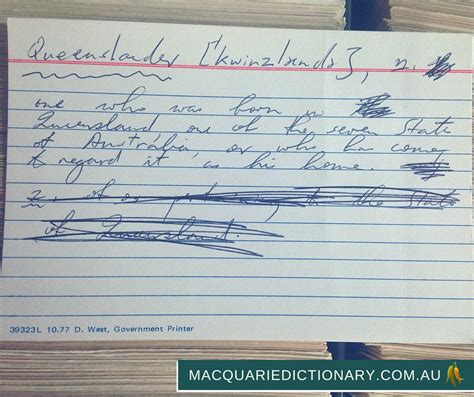 Queenslander [kwinzləndə], n.
one who was born in
Queensland one of the seven States
of Australia, or who has come
to regard it as his home.
2. of or pertaining to the State
of Queensland.
39323L 10.77 D. West, Government Printer
MACQUARIEDICTIONARY.COM.AU